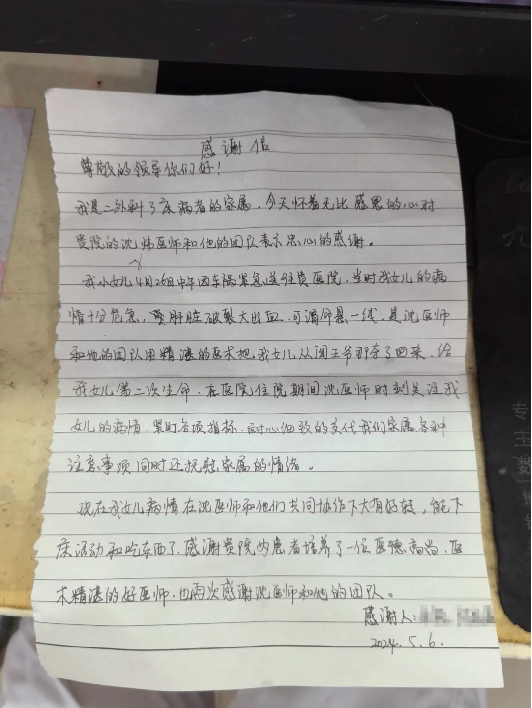 感谢信
尊敬的领导你们好！
我是二外科了床病者的家属，今天怀着无比感恩的心对
贵院的沈炜医师和他的团队表示忠心的感谢。
我小女儿4月26中午因车祸紧急送往贵医院，当时我女儿的病
情十分危急，肝脏破裂大出血，可谓命悬一线，是沈医师
和他的团队用精湛的医术把我女儿从阎王爷那夺了回来，给
我女儿第二次生命，在医院住院期间沈医师时刻关注我
女儿的病情，紧盯各项指标，耐心细致的交代我们家属各种
注意事项同时还抚慰家属的情绪。
现在我女儿病情在沈医师和他们共同协作下大有好转，能下
床活动和吃东西了，感谢贵院为患者培养了一位医德高尚，医
术精湛的好医师，也再次感谢沈医师和他的团队。
感谢人：
2024.5.6.
专
主
数